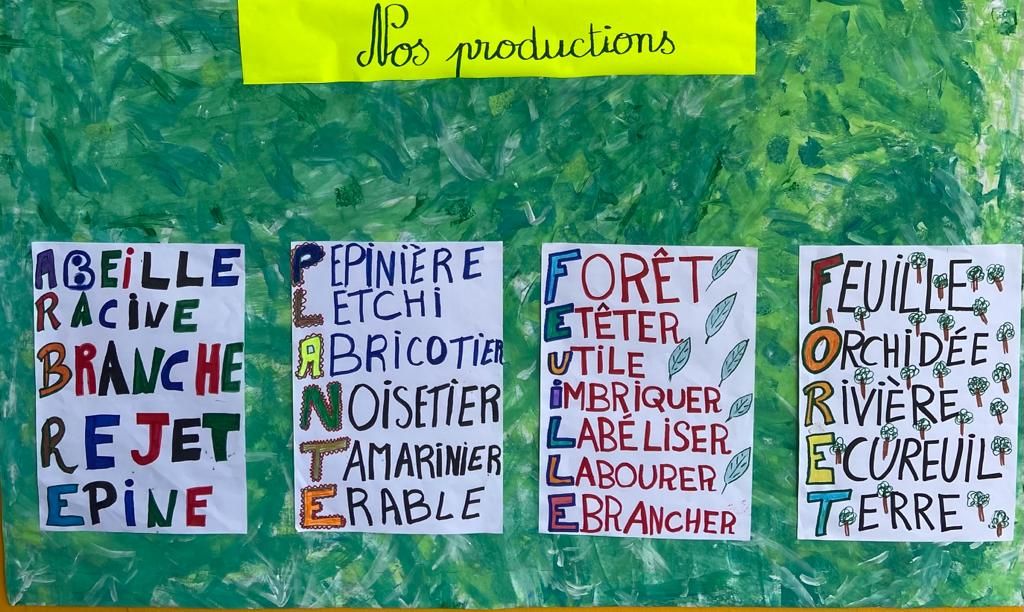 Nos productions
ABEILLE
RACINE
BRANCHE
REJET
EPINE
PEPINIÈRE
LETCHI
ABRICOTIER
NOISETIER
TAMARINIER
ERABLE
FORÊT
ETÊTER
UTILE
IMBRIQUER
LABÉLISER
LABOURER
EBRANCHER
FEUILLE
ORCHIDÉE
RIVIÈRE
ECUREUIL
TERRE